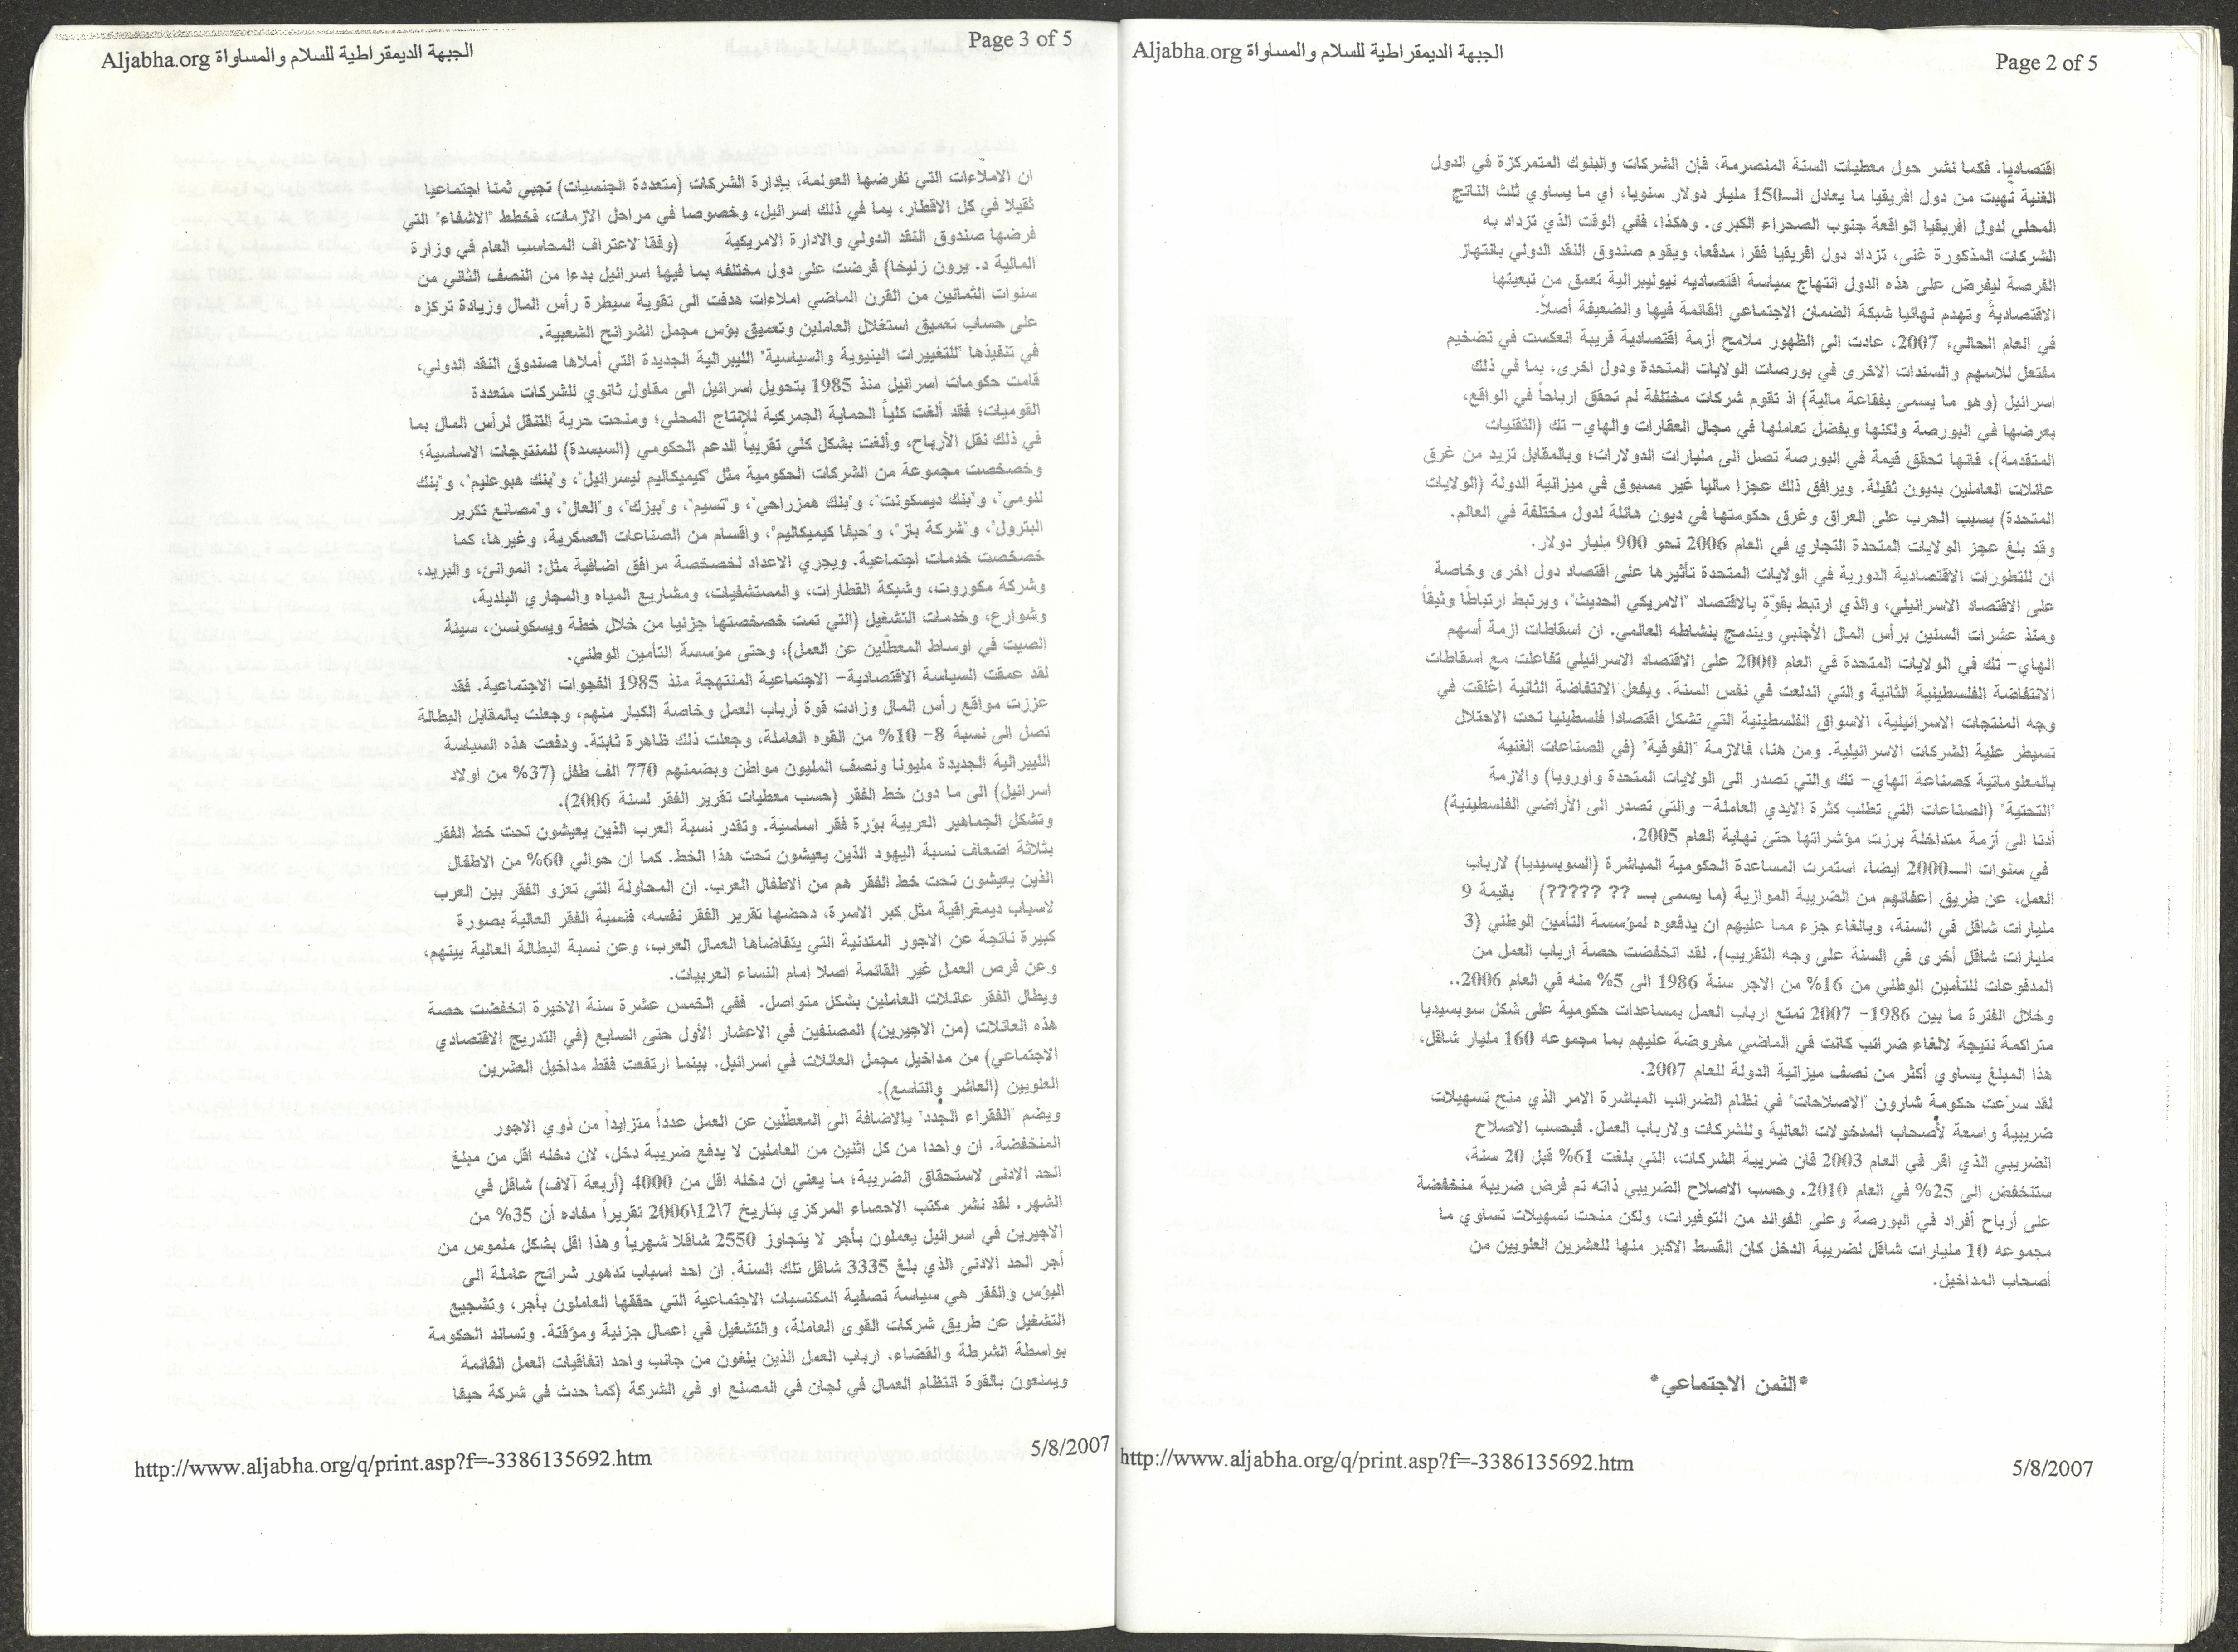 Aljabha.org الجبهة الديمقراطية للسلام والمساواة
Page 2 of 5
اقتصاديا. فكما نشر حول معطيات السنة المنصرمة، فإن الشركات والبنوك المتمركزة في الدول
الغنية نهبت من دول افريقيا ما يعادل الـ150 مليار دولار سنويا، اي ما يساوي ثلث الناتج
المحلي لدول افريقيا الواقعة جنوب الصحراء الكبرى. وهكذا، ففي الوقت الذي تزداد به
الشركات المذكورة غنى، تزداد دول افريقيا فقرا مدقعا، ويقوم صندوق النقد الدولي بانتهاز
الفرصة ليفرض على هذه الدول انتهاج سياسة اقتصاديه نيوليبرالية تعمق من تبعيتها
الاقتصادية وتهدم نهائيا شبكة الضمان الاجتماعي القائمة فيها والضعيفة أصلاً.
في العام الحالي، 2007، عادت الى الظهور ملامح أزمة اقتصادية قريبة انعكست في تضخيم
مفتعل للاسهم والسندات الاخرى في بورصات الولايات المتحدة ودول اخرى، بما في ذلك
اسرائيل (وهو ما يسمى بفقاعة مالية) اذ تقوم شركات مختلفة لم تحقق ارباحاً في الواقع،
بعرضها في البورصة ولكنها وبفضل تعاملها في مجال العقارات والهاي- تك (التقنيات
المتقدمة)، فانها تحقق قيمة في البورصة تصل الى مليارات الدولارات؛ وبالمقابل تزيد من غرق
عائلات العاملين بديون ثقيلة. ويرافق ذلك عجزا ماليا غير مسبوق في ميزانية الدولة (الولايات
المتحدة) بسبب الحرب على العراق وغرق حكومتها في ديون هائلة لدول مختلفة في العالم.
وقد بلغ عجز الولايات المتحدة التجاري في العام 2006 نحو 900 مليار دولار.
ان للتطورات الاقتصادية الدورية في الولايات المتحدة تأثيرها على اقتصاد دول اخرى وخاصة
على الاقتصاد الاسرائيلي، والذي ارتبط بقوّة بالاقتصاد "الامريكي الحديث"، ويرتبط ارتباطًا وثيقاً
ومنذ عشرات السنين برأس المال الأجنبي ويندمج بنشاطه العالمي. ان اسقاطات ازمة أسهم
الهاي- تك في الولايات المتحدة في العام 2000 على الاقتصاد الاسرائيلي تفاعلت مع اسقاطات
الانتفاضة الفلسطينية الثانية والتي اندلعت في نفس السنة. وبفعل الانتفاضة الثانية اغلقت في
وجه المنتجات الاسرائيلية، الاسواق الفلسطينية التي تشكل اقتصادا فلسطينيا تحت الاحتلال
تسيطر علية الشركات الاسرائيلية. ومن هنا، فالازمة "الفوقية" (في الصناعات الغنية
بالمعلوماتية كصناعة الهاي- تك والتي تصدر الى الولايات المتحدة واوروبا) والازمة
"التحتية" (الصناعات التي تطلب كثرة الايدي العاملة- والتي تصدر الى الأراضي الفلسطينية)
أدتا الى أزمة متداخلة برزت مؤشراتها حتى نهاية العام 2005.
في سنوات الـ2000 ايضا، استمرت المساعدة الحكومية المباشرة (السوبسيديا) لارباب
العمل، عن طريق اعفائهم من الضريبة الموازية (ما يسمى بـ ?? ?????) بقيمة 9
مليارات شاقل في السنة، وبالغاء جزء مما عليهم ان يدفعوه لمؤسسة التأمين الوطني (3
مليارات شاقل أخرى في السنة على وجه التقريب). لقد انخفضت حصة ارباب العمل من
المدفوعات للتأمين الوطني من 16% من الاجر سنة 1986 الى 5% منه في العام 2006..
وخلال الفترة ما بين 1986- 2007 تمتع ارباب العمل بمساعدات حكومية على شكل سوبسيديا
متراكمة نتيجة لالغاء ضرائب كانت في الماضي مفروضة عليهم بما مجموعه 160 مليار شاقل،
هذا المبلغ يساوي أكثر من نصف ميزانية الدولة للعام 2007.
لقد سرّعت حكومة شارون "الاصلاحات" في نظام الضرائب المباشرة الامر الذي منح تسهيلات
ضريبية واسعة لأصحاب المدخولات العالية وللشركات ولارباب العمل. فبحسب الاصلاح
الضريبي الذي اقر في العام 2003 فان ضريبة الشركات، التي بلغت 61% قبل 20 سنة،
ستنخفض الى 25% في العام 2010. وحسب الاصلاح الضريبي ذاته تم فرض ضريبة منخفضة
على أرباح أفراد في البورصة وعلى الفوائد من التوفيرات، ولكن منحت تسهيلات تساوي ما
مجموعه 10 مليارات شاقل لضريبة الدخل كان القسط الاكبر منها للعشرين العلويين من
أصحاب المداخيل.
*الثمن الاجتماعي*
http://www.aljabha.org/q/print.asp?f=-3386135692.htm
5/8/2007
Aljabha.org الجبهة الديمقراطية للسلام والمساواة
Page 3 of 5
ان الاملاءات التي تفرضها العولمة، بإدارة الشركات (متعددة الجنسيات) تجبي ثمنا اجتماعيا
ثقيلا في كل الاقطار، بما في ذلك اسرائيل، وخصوصا في مراحل الازمات، فخطط "الاشفاء" التي
فرضها صندوق النقد الدولي والادارة الامريكية (وفقا لاعتراف المحاسب العام في وزارة
المالية د. يرون زليخا) فرضت على دول مختلفه بما فيها اسرائيل بدءا من النصف الثاني من
سنوات الثمانين من القرن الماضي املاءات هدفت الى تقوية سيطرة رأس المال وزيادة تركزه
على حساب تعميق استغلال العاملين وتعميق بؤس مجمل الشرائح الشعبية.
في تنفيذها "للتغييرات البنيوية والسياسية" الليبرالية الجديدة التي أملاها صندوق النقد الدولي،
قامت حكومات اسرائيل منذ 1985 بتحويل اسرائيل الى مقاول ثانوي للشركات متعددة
القوميات؛ فقد ألغت كلياً الحماية الجمركية للإنتاج المحلي؛ ومنحت حرية التنقل لرأس المال بما
في ذلك نقل الأرباح، وألغت بشكل كلي تقريباً الدعم الحكومي (السبسدة) للمنتوجات الاساسية؛
وخصخصت مجموعة من الشركات الحكومية مثل "كيميكاليم ليسرائيل"، و"بنك هبوعليم"، و"بنك
للومي"، و"بنك ديسكونت"، و"بنك همزراحي"، و"تسيم"، و"بيزك"، و"العال"، و"مصانع تكرير
البترول"، و"شركة باز"، و"حيفا كيميكاليم"، واقسام من الصناعات العسكرية، وغيرها، كما
خصخصت خدمات اجتماعية. ويجري الاعداد لخصخصة مرافق اضافية مثل: الموانئ، والبريد،
وشركة مكوروت، وشبكة القطارات، والمستشفيات، ومشاريع المياه والمجاري البلدية،
وشوارع، وخدمات التشغيل (التي تمت خصخصتها جزئيا من خلال خطة ويسكونسن، سيئة
الصيت في اوساط المعطّلين عن العمل)، وحتى مؤسسة التأمين الوطني.
لقد عمقت السياسة الاقتصادية- الاجتماعية المنتهجة منذ 1985 الفجوات الاجتماعية. فقد
عززت مواقع رأس المال وزادت قوة أرباب العمل وخاصة الكبار منهم، وجعلت بالمقابل البطالة
تصل الى نسبة 8- 10% من القوه العاملة، وجعلت ذلك ظاهرة ثابتة. ودفعت هذه السياسة
الليبرالية الجديدة مليونا ونصف المليون مواطن وبضمنهم 770 الف طفل (37% من اولاد
اسرائيل) الى ما دون خط الفقر (حسب معطيات تقرير الفقر لسنة 2006).
وتشكل الجماهير العربية بؤرة فقر اساسية. وتقدر نسبة العرب الذين يعيشون تحت خط الفقر
بثلاثة اضعاف نسبة اليهود الذين يعيشون تحت هذا الخط. كما ان حوالي 60% من الاطفال
الذين يعيشون تحت خط الفقر هم من الاطفال العرب. ان المحاولة التي تعزو الفقر بين العرب
لاسباب ديمغرافية مثل كبر الاسرة، دحضها تقرير الفقر نفسه، فنسبة الفقر العالية بصورة
كبيرة ناتجة عن الاجور المتدنية التي يتقاضاها العمال العرب، وعن نسبة البطالة العالية بينهم،
وعن فرص العمل غير القائمة اصلا امام النساء العربيات.
ويطال الفقر عائلات العاملين بشكل متواصل. ففي الخمس عشرة سنة الاخيرة انخفضت حصة
هذه العائلات (من الاجيرين) المصنفين في الاعشار الأول حتى السابع (في التدريج الاقتصادي
الاجتماعي) من مداخيل مجمل العائلات في اسرائيل. بينما ارتفعت فقط مداخيل العشرين
العلويين (العاشر والتاسع).
ويضم "الفقراء الجدد" بالاضافة الى المعطّلين عن العمل عدداً متزايداً من ذوي الاجور
المنخفضة. ان واحدا من كل اثنين من العاملين لا يدفع ضريبة دخل، لان دخله اقل من مبلغ
الحد الادنى لاستحقاق الضريبة؛ ما يعني ان دخله اقل من 4000 (أربعة آلاف) شاقل في
الشهر. لقد نشر مكتب الاحصاء المركزي بتاريخ 7\12\2006 تقريراً مفاده أن 35% من
الاجيرين في اسرائيل يعملون بأجر لا يتجاوز 2550 شاقلا شهرياً وهذا اقل بشكل ملموس من
أجر الحد الادنى الذي بلغ 3335 شاقل تلك السنة. ان احد اسباب تدهور شرائح عاملة الى
البؤس والفقر هي سياسة تصفية المكتسبات الاجتماعية التي حققها العاملون بأجر، وتشجيع
التشغيل عن طريق شركات القوى العاملة، والتشغيل في اعمال جزئية ومؤقتة. وتساند الحكومة
بواسطة الشرطة والقضاء، ارباب العمل الذين يلغون من جانب واحد اتفاقيات العمل القائمة
ويمنعون بالقوة انتظام العمال في لجان في المصنع او في الشركة (كما حدث في شركة حيفا
http://www.aljabha.org/q/print.asp?f=-3386135692.htm
5/8/2007